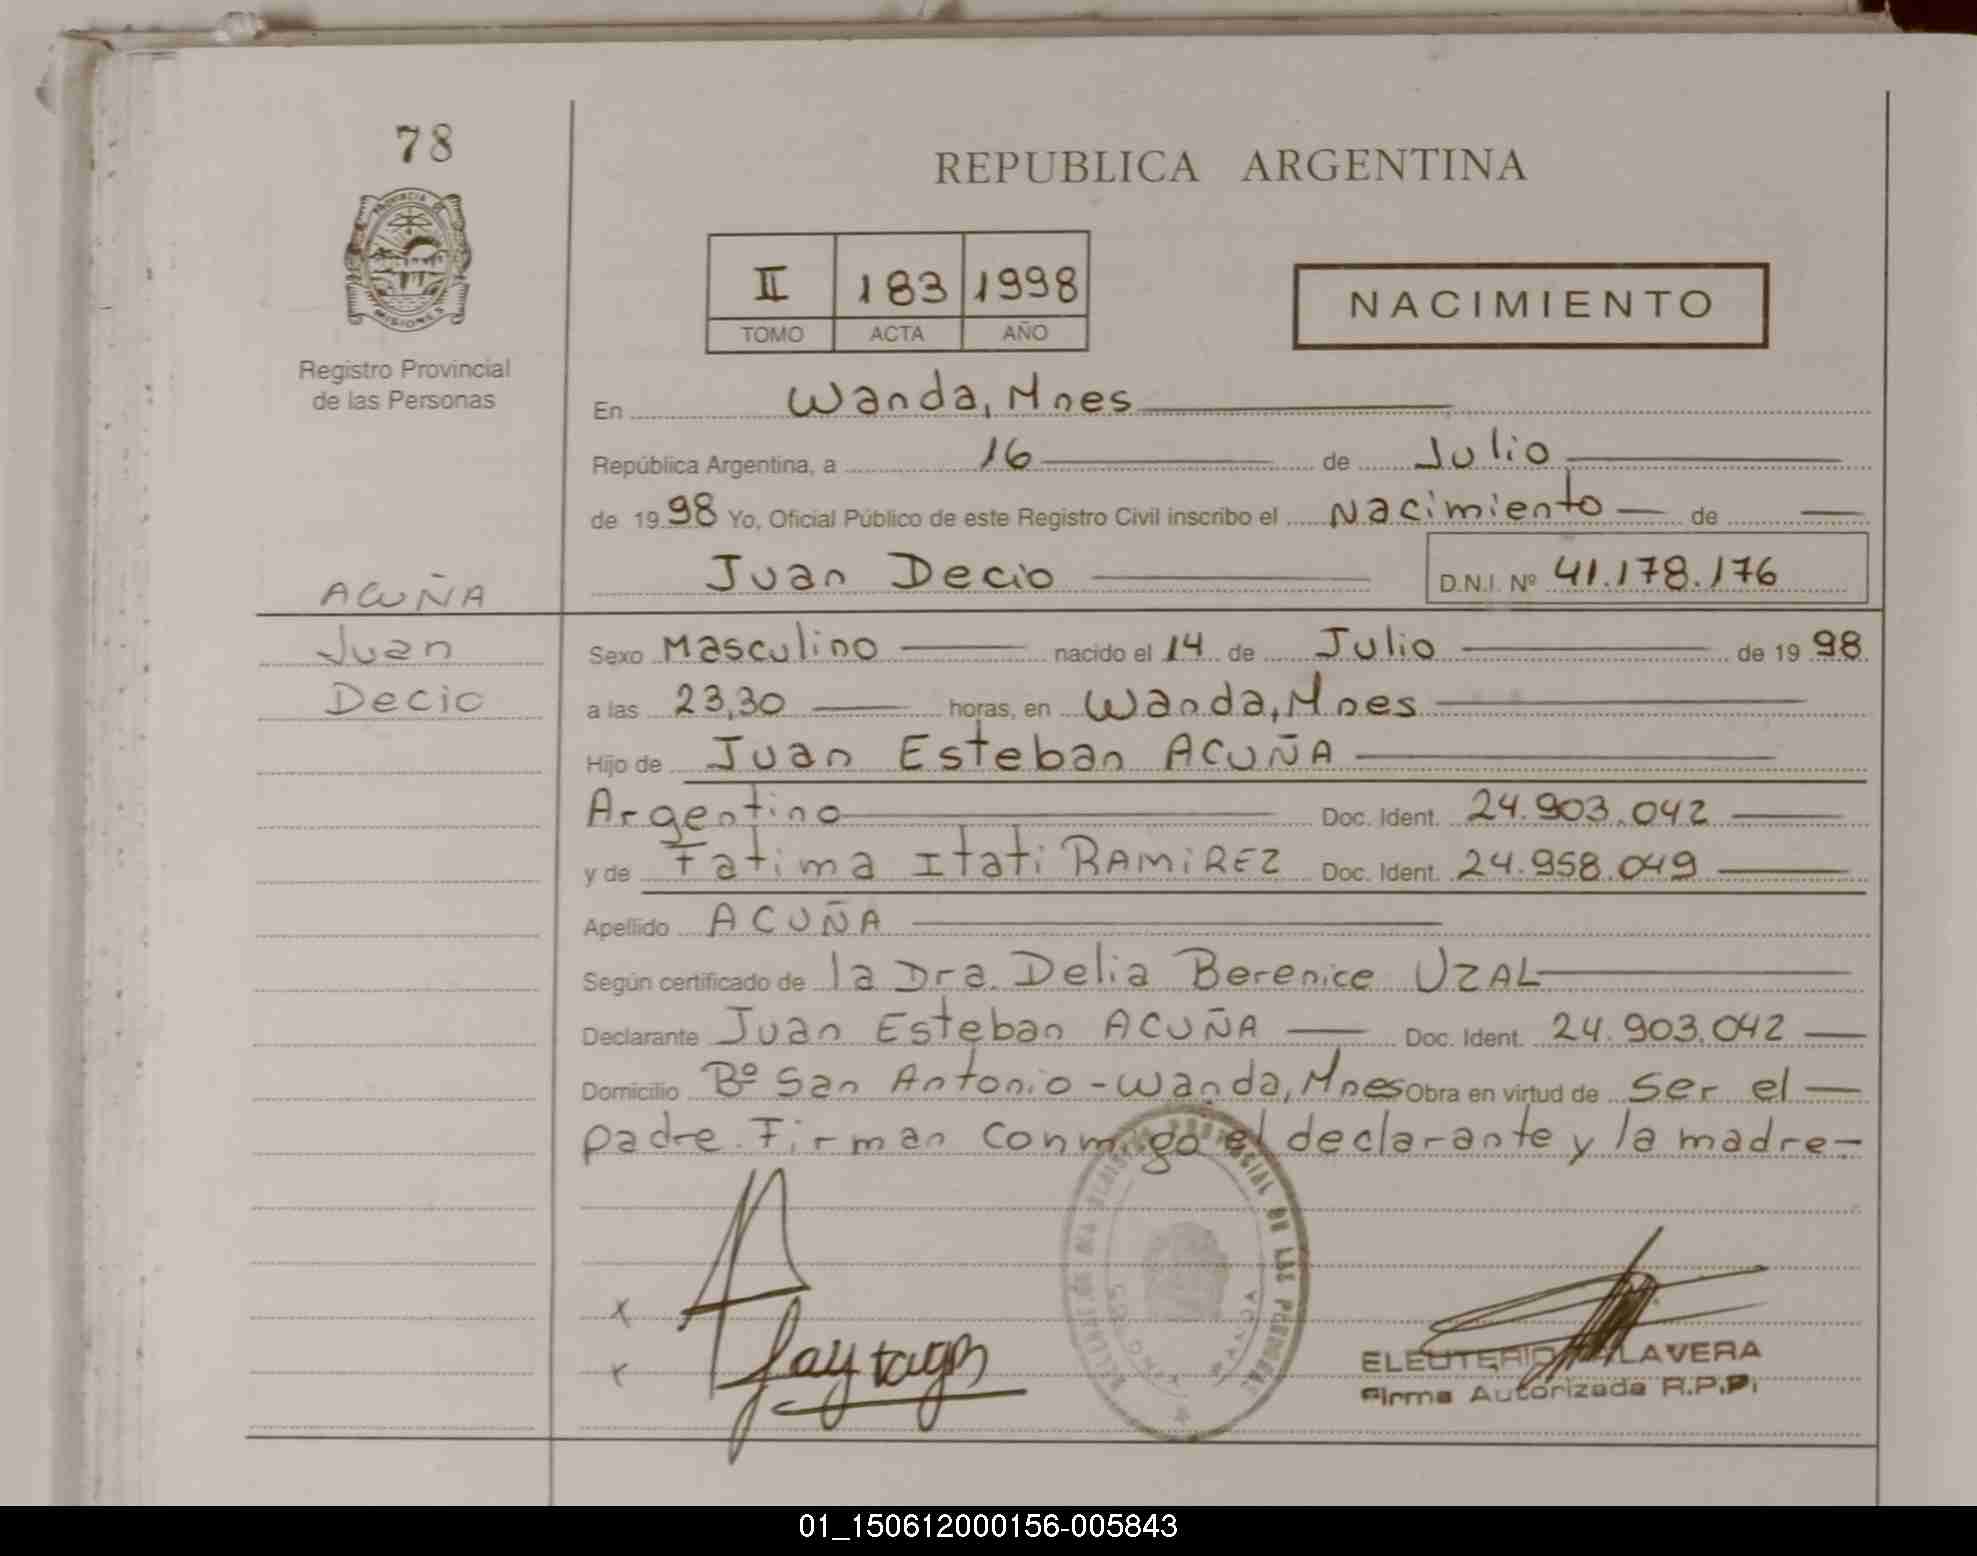 78
REPUBLICA ARGENTINA
PROVINCIA DE
MISIONES
II 183 1998
TOMO ACTA AÑO
NACIMIENTO
Registro Provincial
de las Personas
En Wanda, Mnes
República Argentina, a 16 de Julio
de 1998 Yo, Oficial Público de este Registro Civil inscribo el Nacimiento de
Juan Decio D.N.I. Nº 41.178.176
ACUÑA
Juan
Decio
Sexo Masculino nacido el 14 de Julio de 1998
a las 23,30 horas, en Wanda, Mnes
Hijo de Juan Esteban ACUÑA
Argentino Doc. Ident. 24.903.042
y de Fatima Itati RAMIREZ Doc. Ident. 24.958.049
Apellido ACUÑA
Según certificado de la Dra. Delia Berenice UZAL
Declarante Juan Esteban ACUÑA Doc. Ident. 24.903.042
Domicilio Bº San Antonio - Wanda, Mnes Obra en virtud de ser el
padre. Firman conmigo el declarante y la madre-
x
x
PROVINCIAL DE LAS PERSONAS
ELEUTERIO
Firma Autorizada R.P.P.
01_150612000156-005843